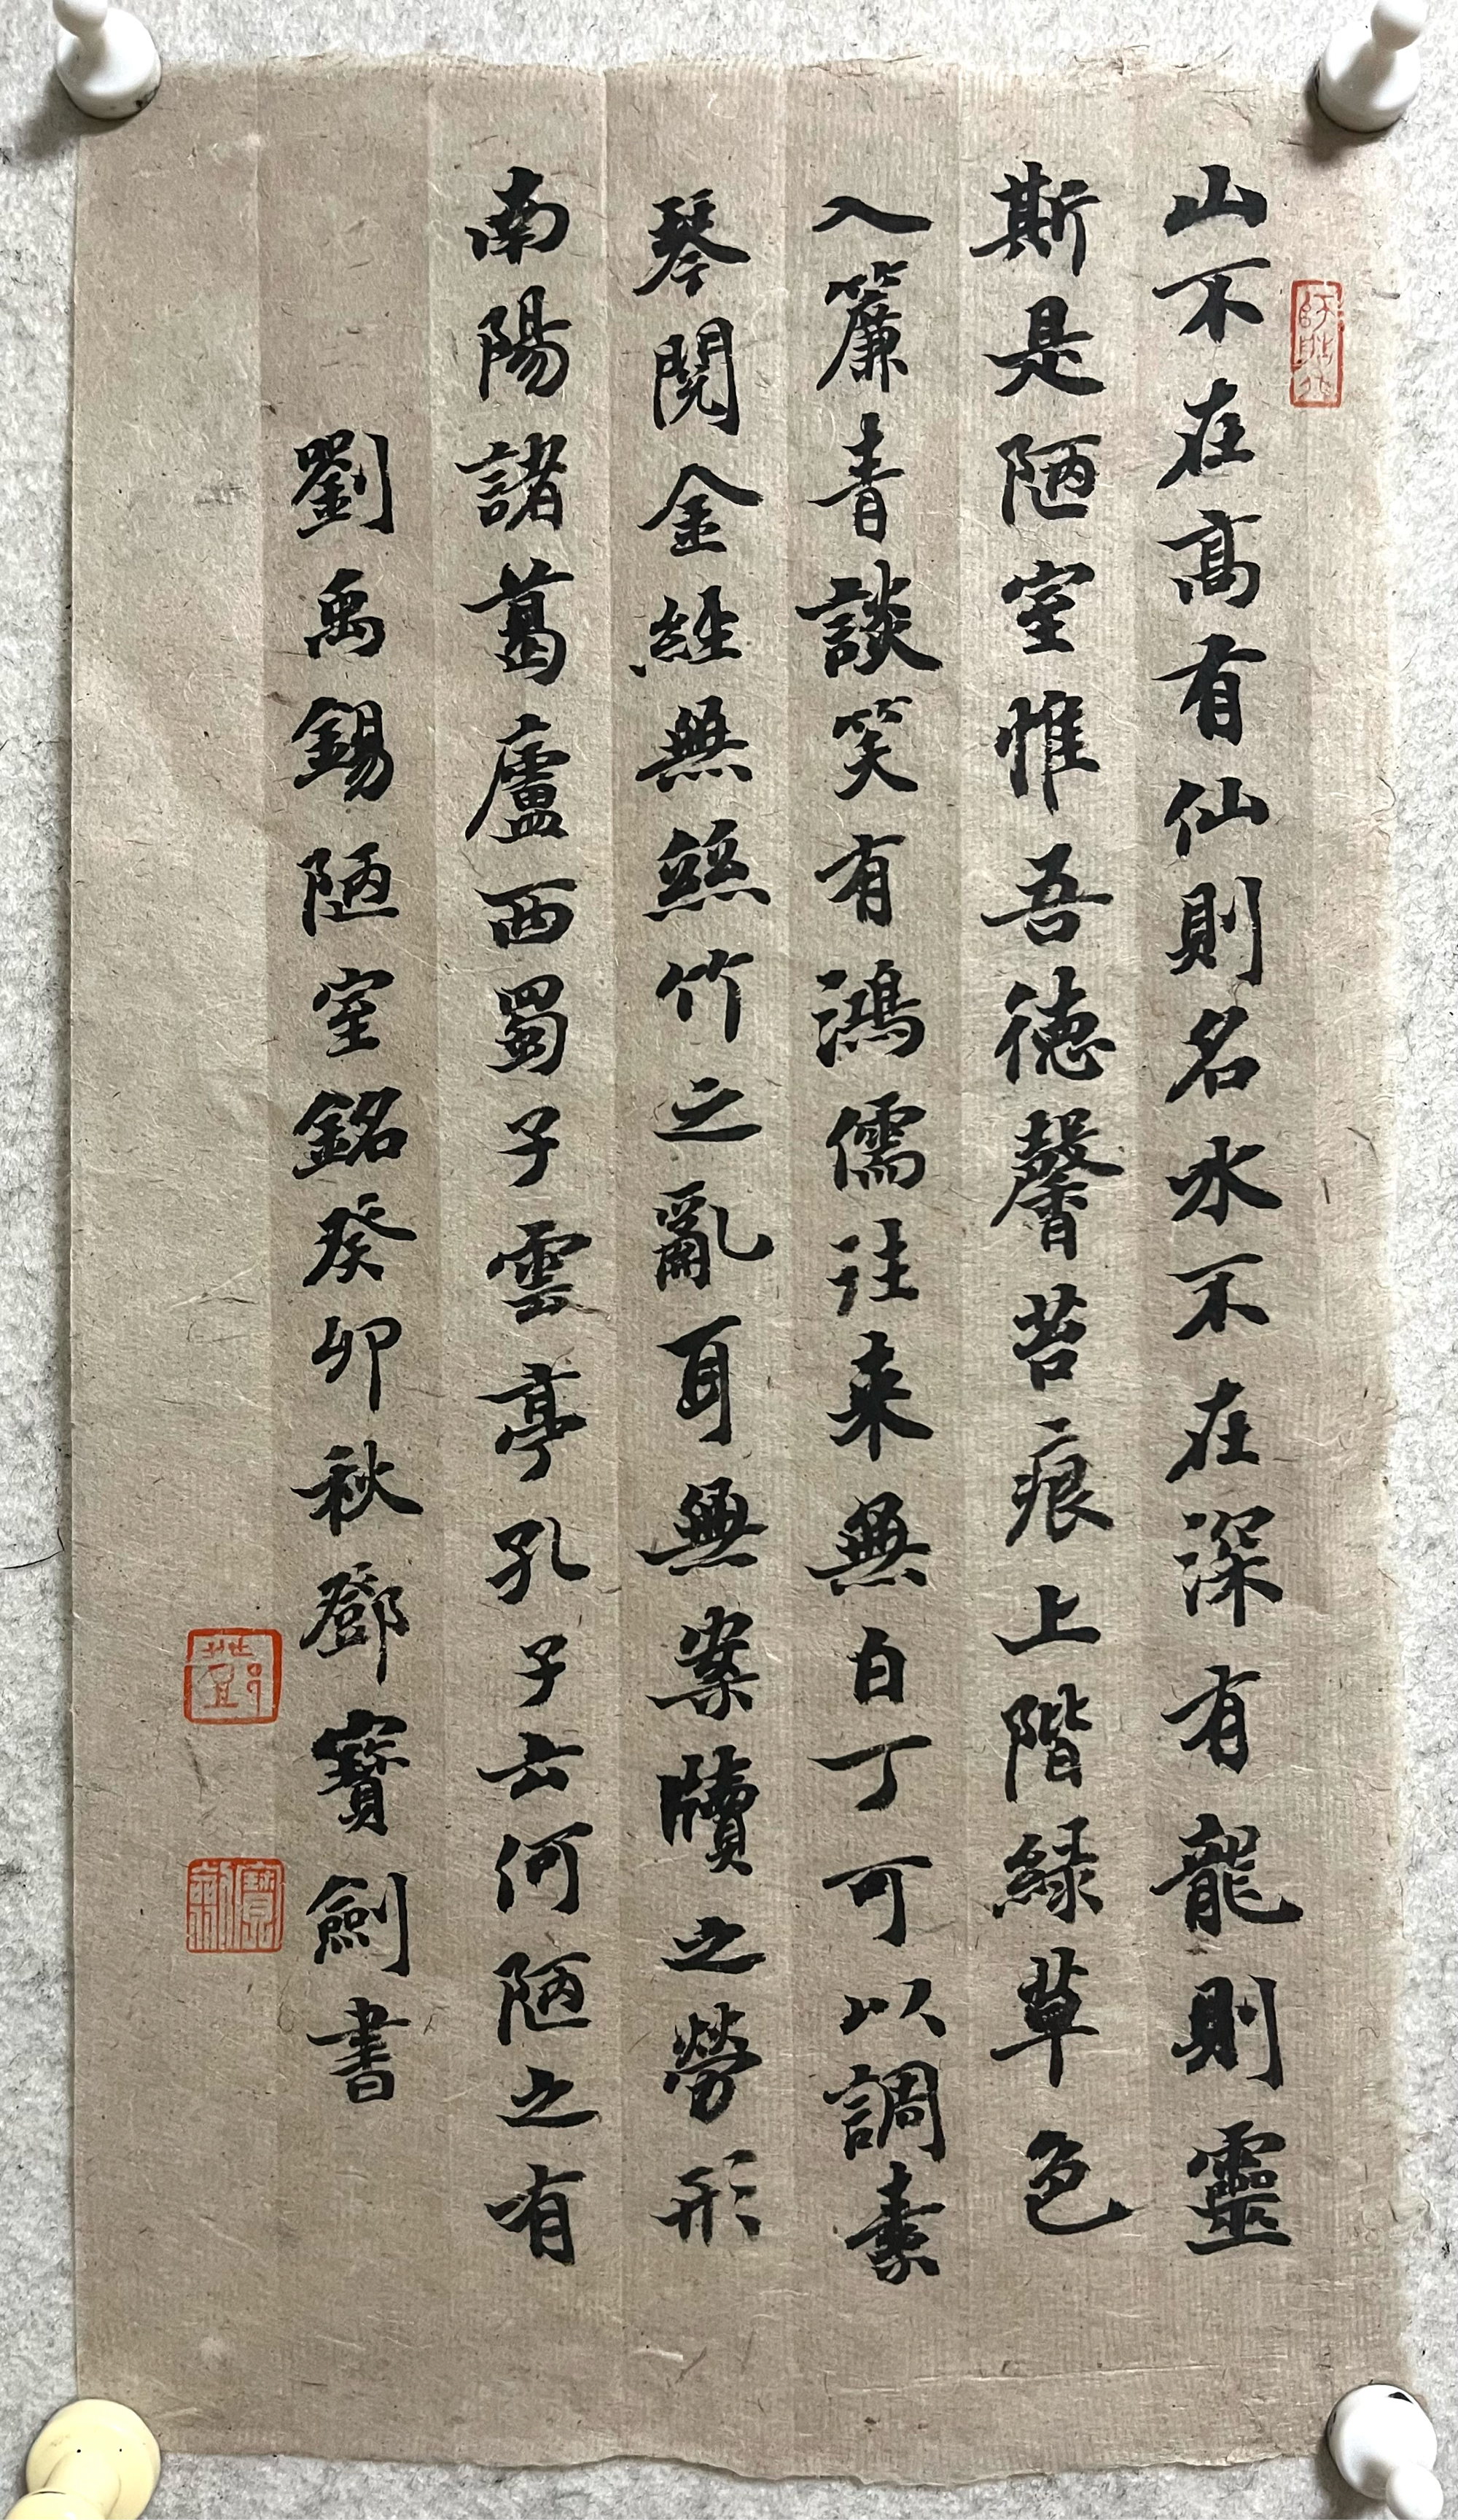 山不在高有仙則名水不在深有龍則靈
斯是陋室惟吾德馨苔痕上階緑草色
入簾青談笑有鴻儒往来無白丁可以調素
琴閱金經無絲竹之亂耳無案牘之勞形
南陽諸葛廬西蜀子雲亭孔子云何陋之有
劉禹錫陋室銘癸卯秋鄧寶劍書
鄧
寶劍